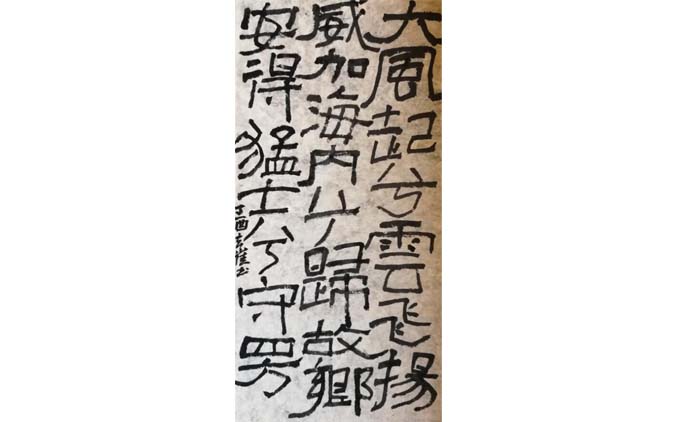 大風起兮雲飞揚
威加海内兮歸故鄉
安得猛士兮守四方
丁酉